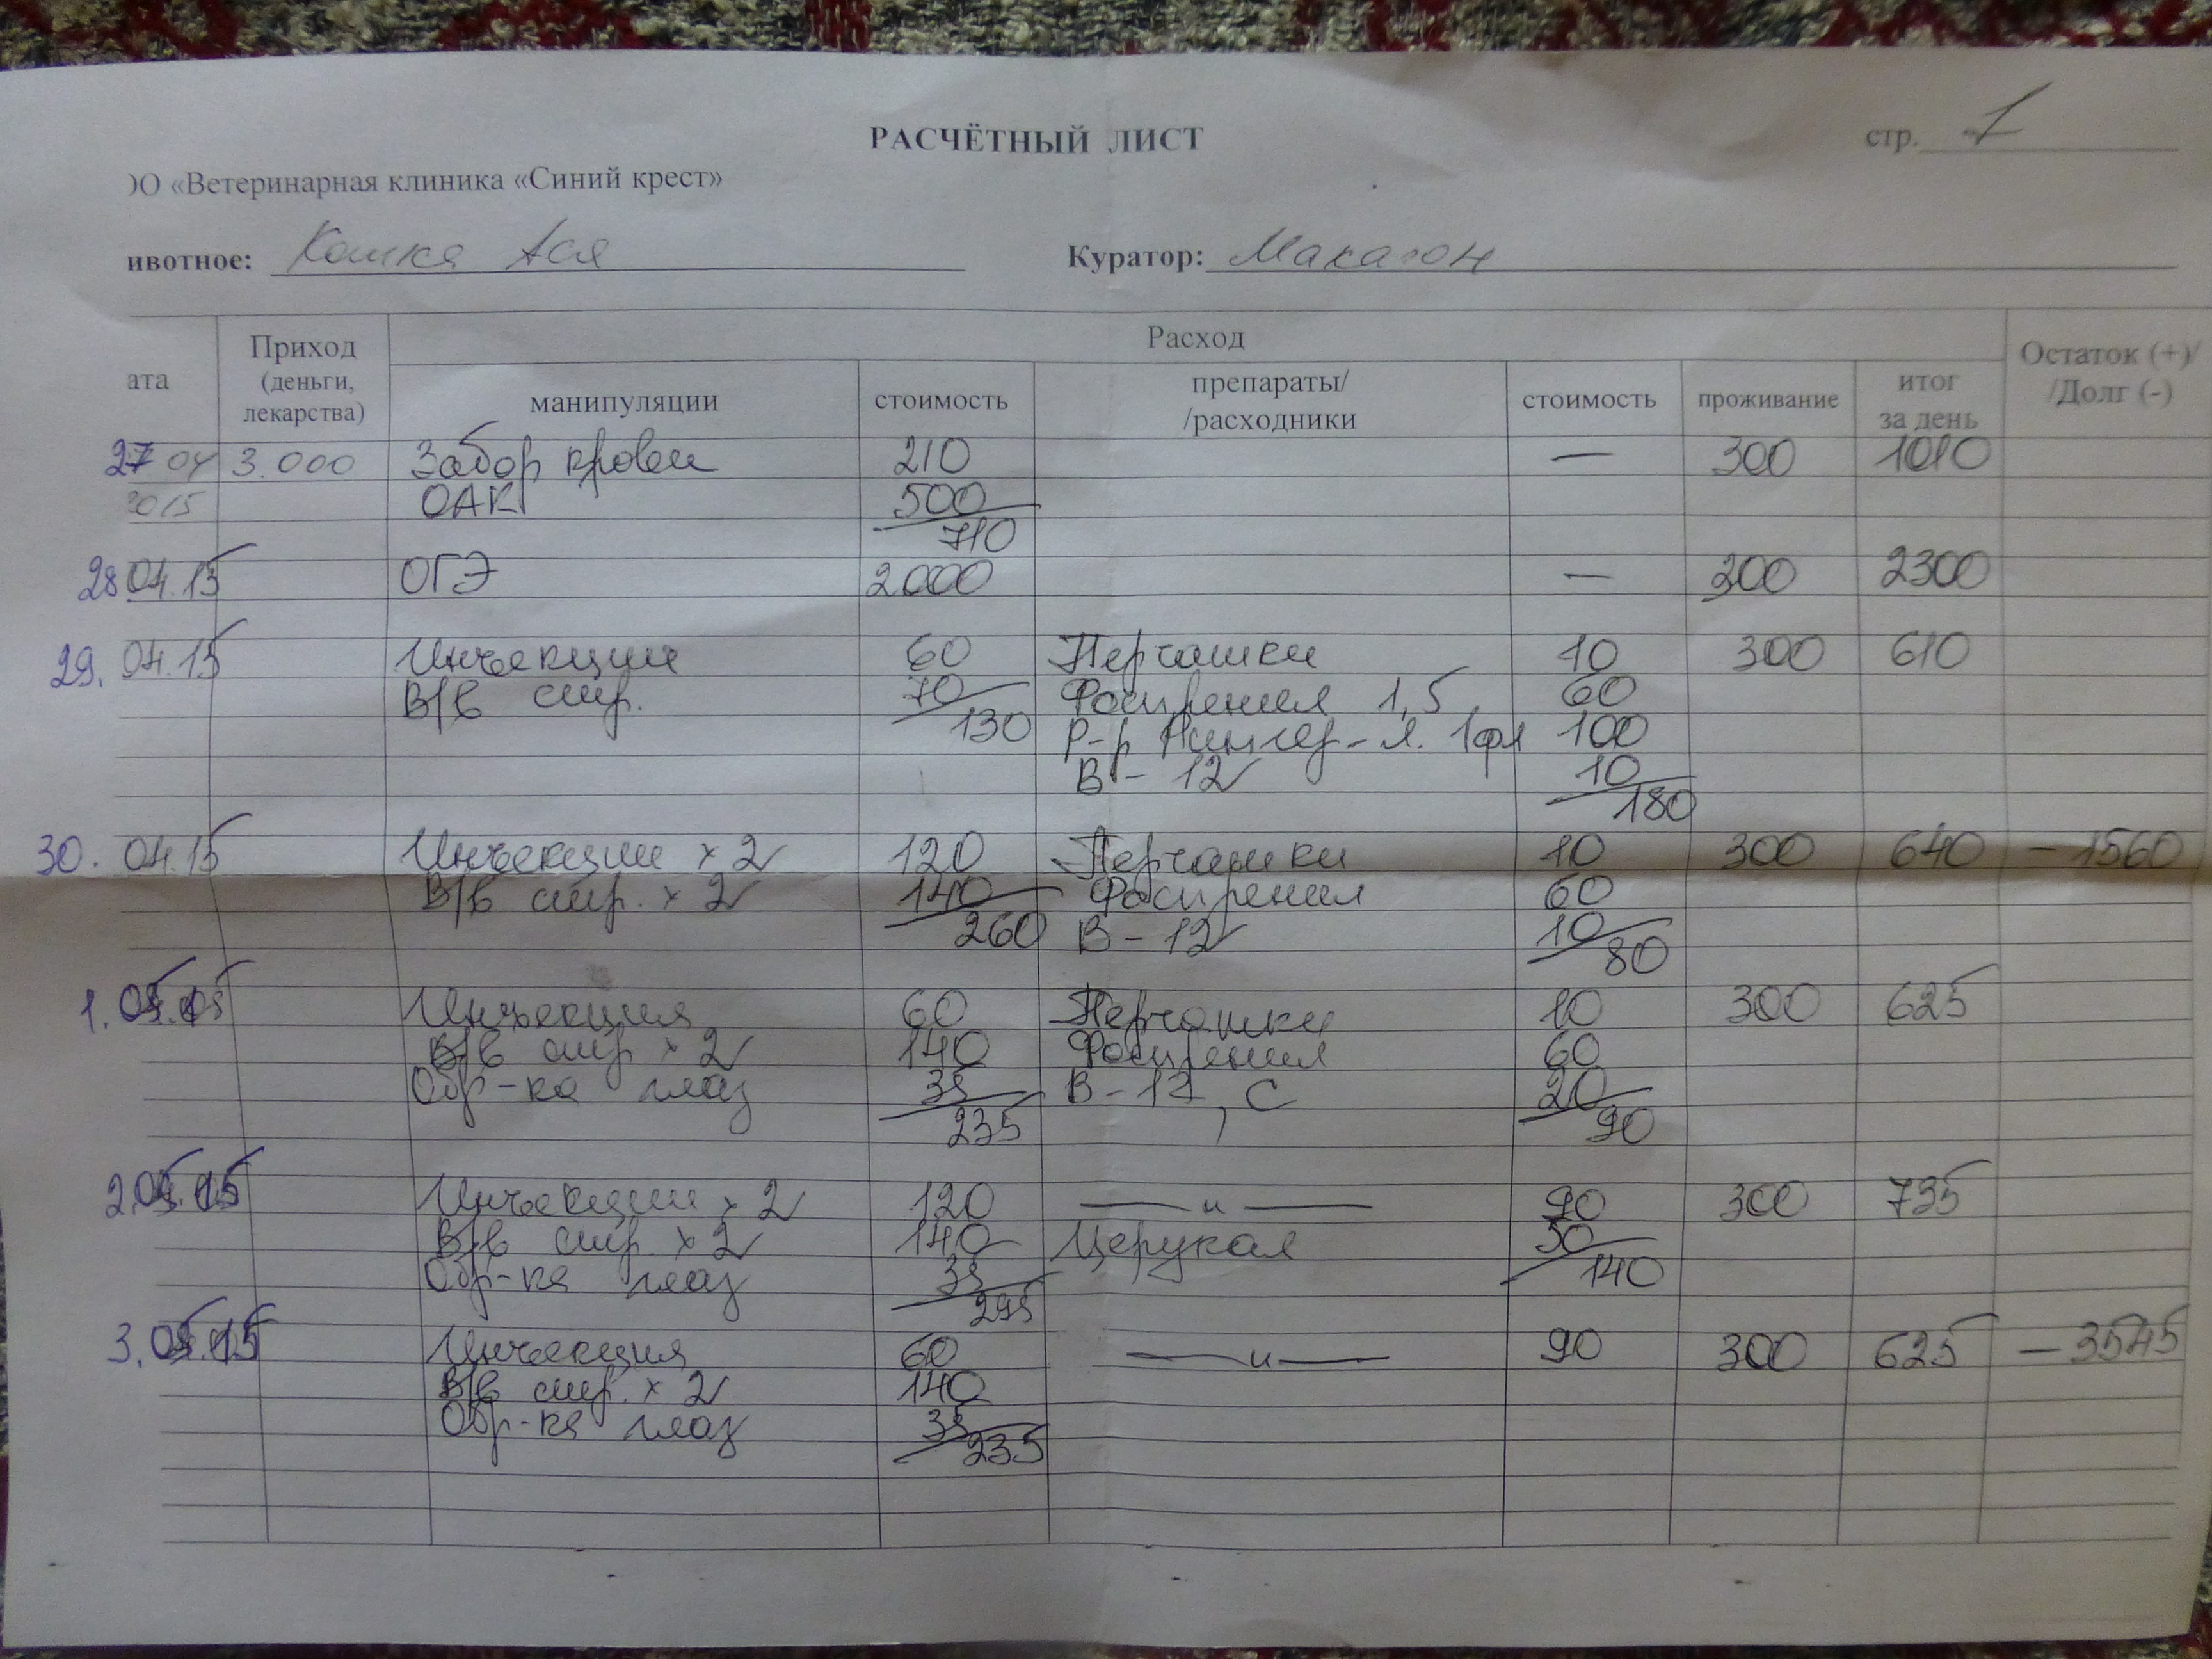 РАСЧЁТНЫЙ ЛИСТ
стр. 1
ОО «Ветеринарная клиника «Синий крест»
ивотное: Кошка Ася Куратор: Макагон
ата Приход (деньги, лекарства) Расход Остаток (+)/ /Долг (-)
манипуляции стоимость препараты/ /расходники стоимость проживание итог за день
27 04 3.000 Забор крови 210 — 300 1010
2015 ОАК 500
710
28 04.15 ОГЭ 2000 — 300 2300
29. 04.15 Инъекции 60 Перчатки 10 300 610
В/в стр. 70 Фоспренил 1,5 60
130 Р-р Рингер-Л. 1фл 100
В-12 10
180
30. 04.15 Инъекции x 2 120 Перчатки 10 300 640 - 1560
В/в стр. x 2 140 Фоспренил 60
260 В-12 10
80
1. 05.15 Инъекция 60 Перчатки 10 300 625
В/в стр x 2 140 Фоспренил 60
Обр-ка глаз 35 В-12, С 20
235 90
2.05.15 Инъекции x 2 120 —— и —— 90 300 735
В/в стр. x 2 140 Церукал 50
Обр-ка глаз 35 140
295
3.05.15 Инъекция 60 —— и —— 90 300 625 - 3545
В/в стр. x 2 140
Обр-ка глаз 35
235